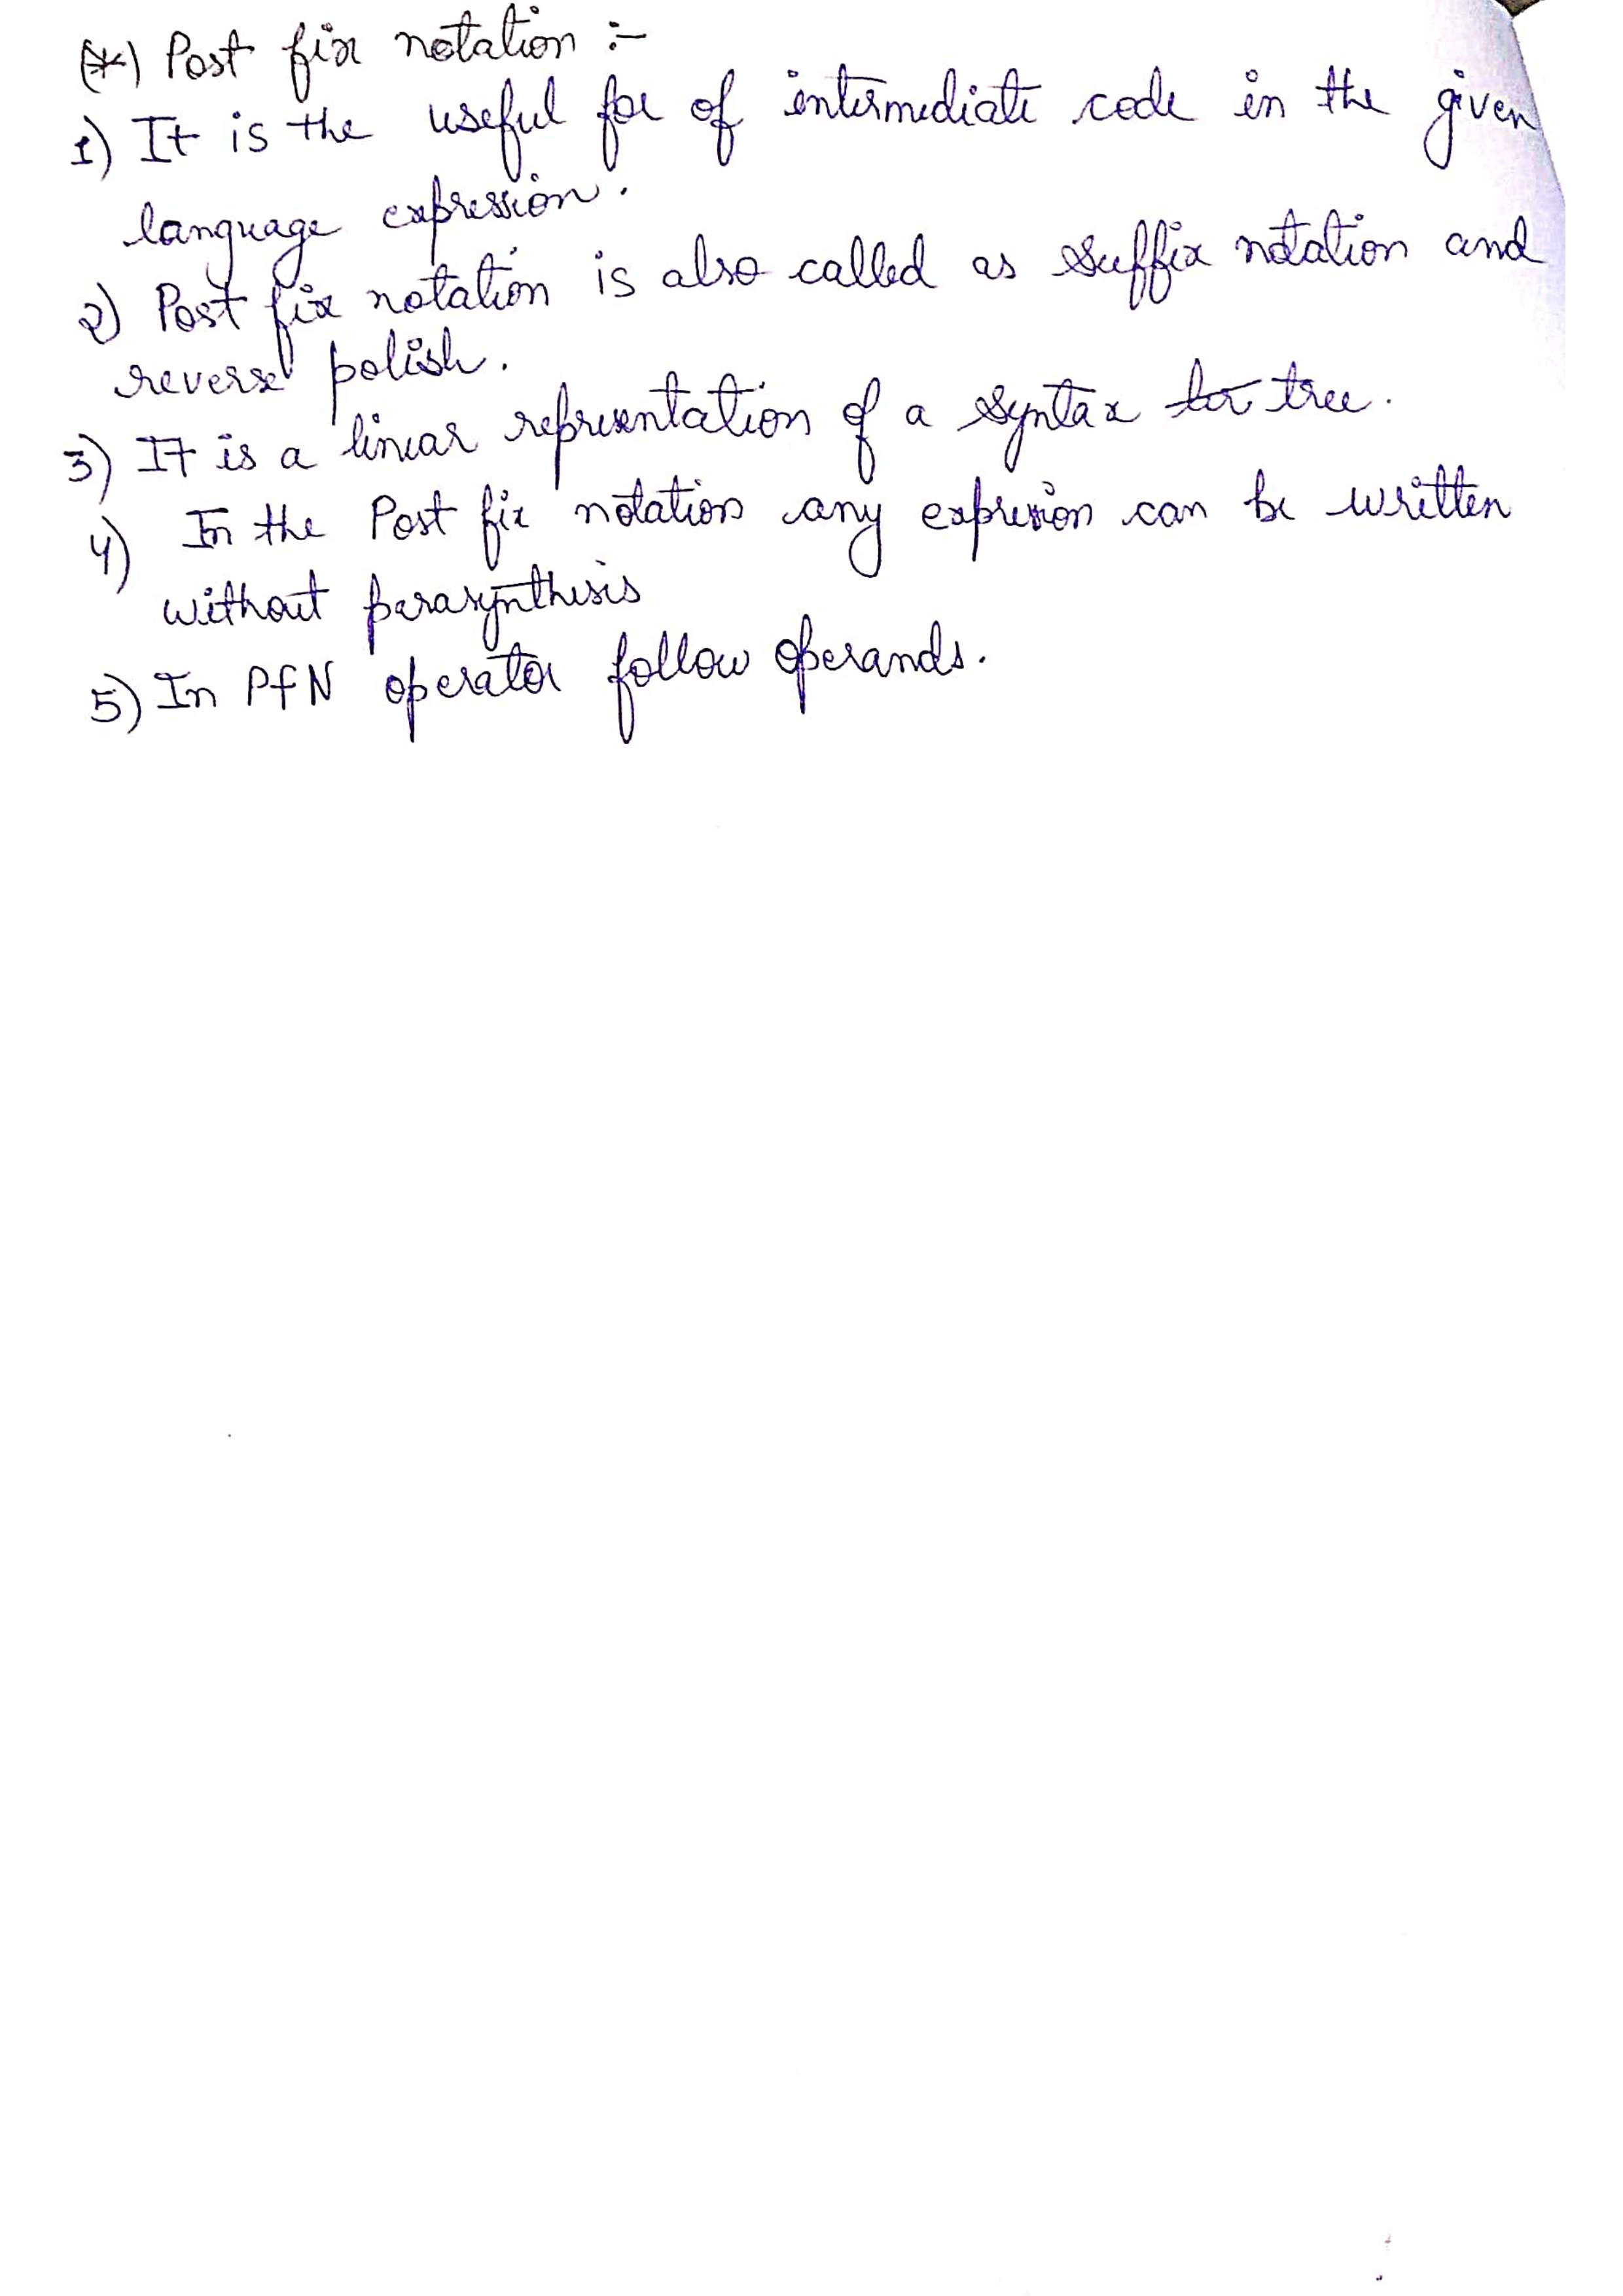 (*) Post fix notation :-
1) It is the useful for of intermediate code in the given
language expression.
2) Post fix notation is also called as suffix notation and
reverse polish.
3) It is a linear representation of a syntax tree.
4) In the Post fix notation any expression can be written
without parasynthesis
5) In PfN operator follow operands.